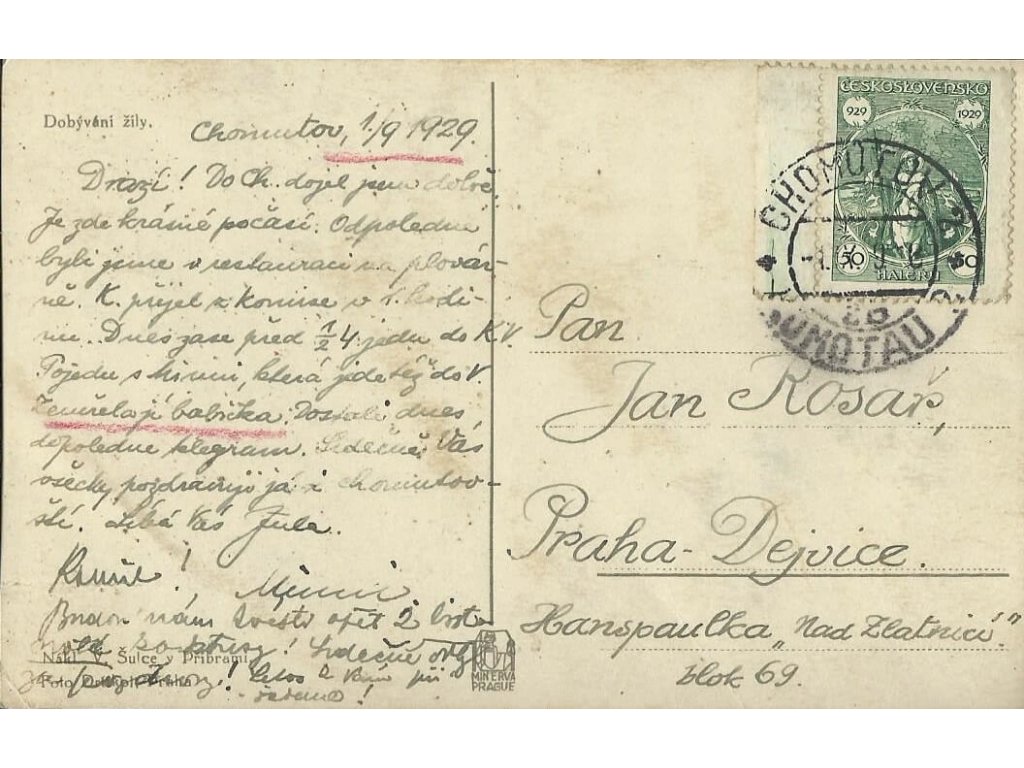 Dobývání žíly.
Chomutov, 1./9 1929.
Drazí! Do Ch. dojel jsem dobře.
Je zde krásné počasí. Odpoledne
byli jsme v restauraci na plovár-
ně. K. přijel z komise v 1. hodi-
nu. Dnes zase před ½ 4 jedu do K.V.
Pojedu s Mimi, která jede též do V.
Zemřela jí babička. Dostali dnes
dopoledne telegram. Srdečně Vás
všecky pozdravuji já i chomutov-
ští. Líbá Vás Jula.
Kamil!
Mimi
Budou nám kvésti opět 2
kaktusy! Srdečné
Nákl. V. Šulce v Příbrami
Foto Drtikol Praha
MINERVA
PRAGUE
ČESKOSLOVENSKO
929 1929
50 HALÉŘŮ 50
CHOMUTOV 2
KOMOTAU 2
Pan
Jan Kosař,
Praha - Dejvice.
Hanspaulka „Nad Zlatnicí“
blok 69.